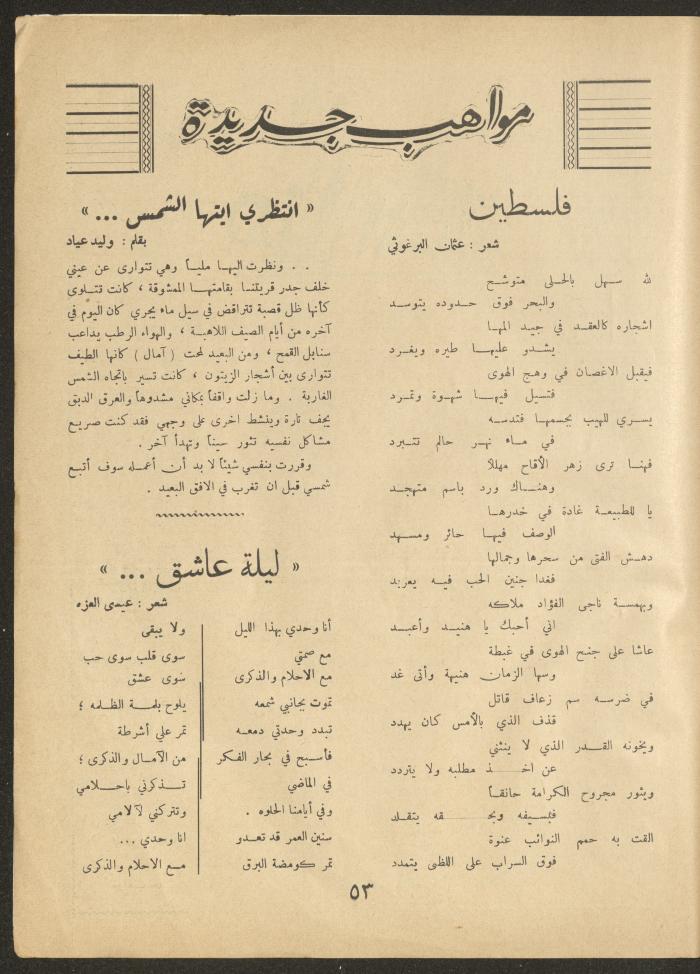 مواهب جديدة
فلسطين
شعر : عثمان البرغوثي
لله سهل بالحلى متوشح
والبحر فوق حدوده يتوسد
اشجاره كالعقد في جيد المها
يشدو عليها طيره ويغرد
فيقبل الاغصان في وهج الهوى
فتسيل فيها شهوة وتمرد
يسري للهيب بجسمها فتدسه
في ماء نهر حالم تتبرد
فهنا ترى زهر الأقاح مهللا
وهناك ورد باسم متهجد
يا للطبيعة غادة في خدرها
الوصف فيها حائر ومسهد
دهش الفتى من سحرها وجمالها
فغدا جنين الحب فيه يعربد
وبهمسة ناجى الفؤاد ملاكه
اني أحبك يا هنيد وأعبد
عاشا على جنح الهوى في غبطة
وسها الزمان هنيهة وأتى غد
في ضرسه سم زعاف قاتل
قذف الذي بالأمس كان يهدد
ويخونه القدر الذي لا ينثني
عن اخذ مطلبه ولا يتردد
ويثور مجروح الكرامة حانقاً
فبسيفه وبحقه يتقلد
القت به حمم النوائب عنوة
فوق السراب على اللظى يتمدد
« انتظري ايتها الشمس ... »
بقلم : وليد عياد
. . ونظرت اليها ملياً وهي تتوارى عن عيني
خلف جدر قريتنا بقامتها الممشوقة ، كانت تتلوى
كأنها ظل قصبة تتراقص في سيل ماء يجري كان اليوم في
آخره من أيام الصيف اللاهبة ، والهواء الرطب يداعب
سنابل القمح ، ومن البعيد لمحت ( آمال ) كانها الطيف
تتوارى بين أشجار الزيتون ، كانت تسير باتجاه الشمس
الغاربة . وما زلت واقفاً بمكاني مشدوهاً والعرق الدبق
يجف تارة وينشط اخرى على وجهي فقد كنت صريع
مشاكل نفسيه تثور حيناً وتهدأ آخر .
وقررت بنفسي شيئاً لا بد أن أعمله سوف أتبع
شمسي قبل ان تغرب في الافق البعيد .
« ليلة عاشق ... »
شعر : عيسى العزه
أنا وحدي بهذا الليل
مع صمتي
مع الاحلام والذكرى
تموت بجانبي شمعه
تبدد وحدتي دمعه
فأسبح في بحار الفكر
في الماضي
وفي أيامنا الحلوه .
سنين العمر قد تعدو
تمر كومضة البرق
ولا يبقى
سوى قلب سوى حب
سوى عشق
يلوح بلمة الظلمه ؛
تمر علي أشرطة
من الآمال والذكرى ؛
تذكرني باحلامي
وتتركني لآلامي
انا وحدي ...
مع الاحلام والذكرى
٥٣